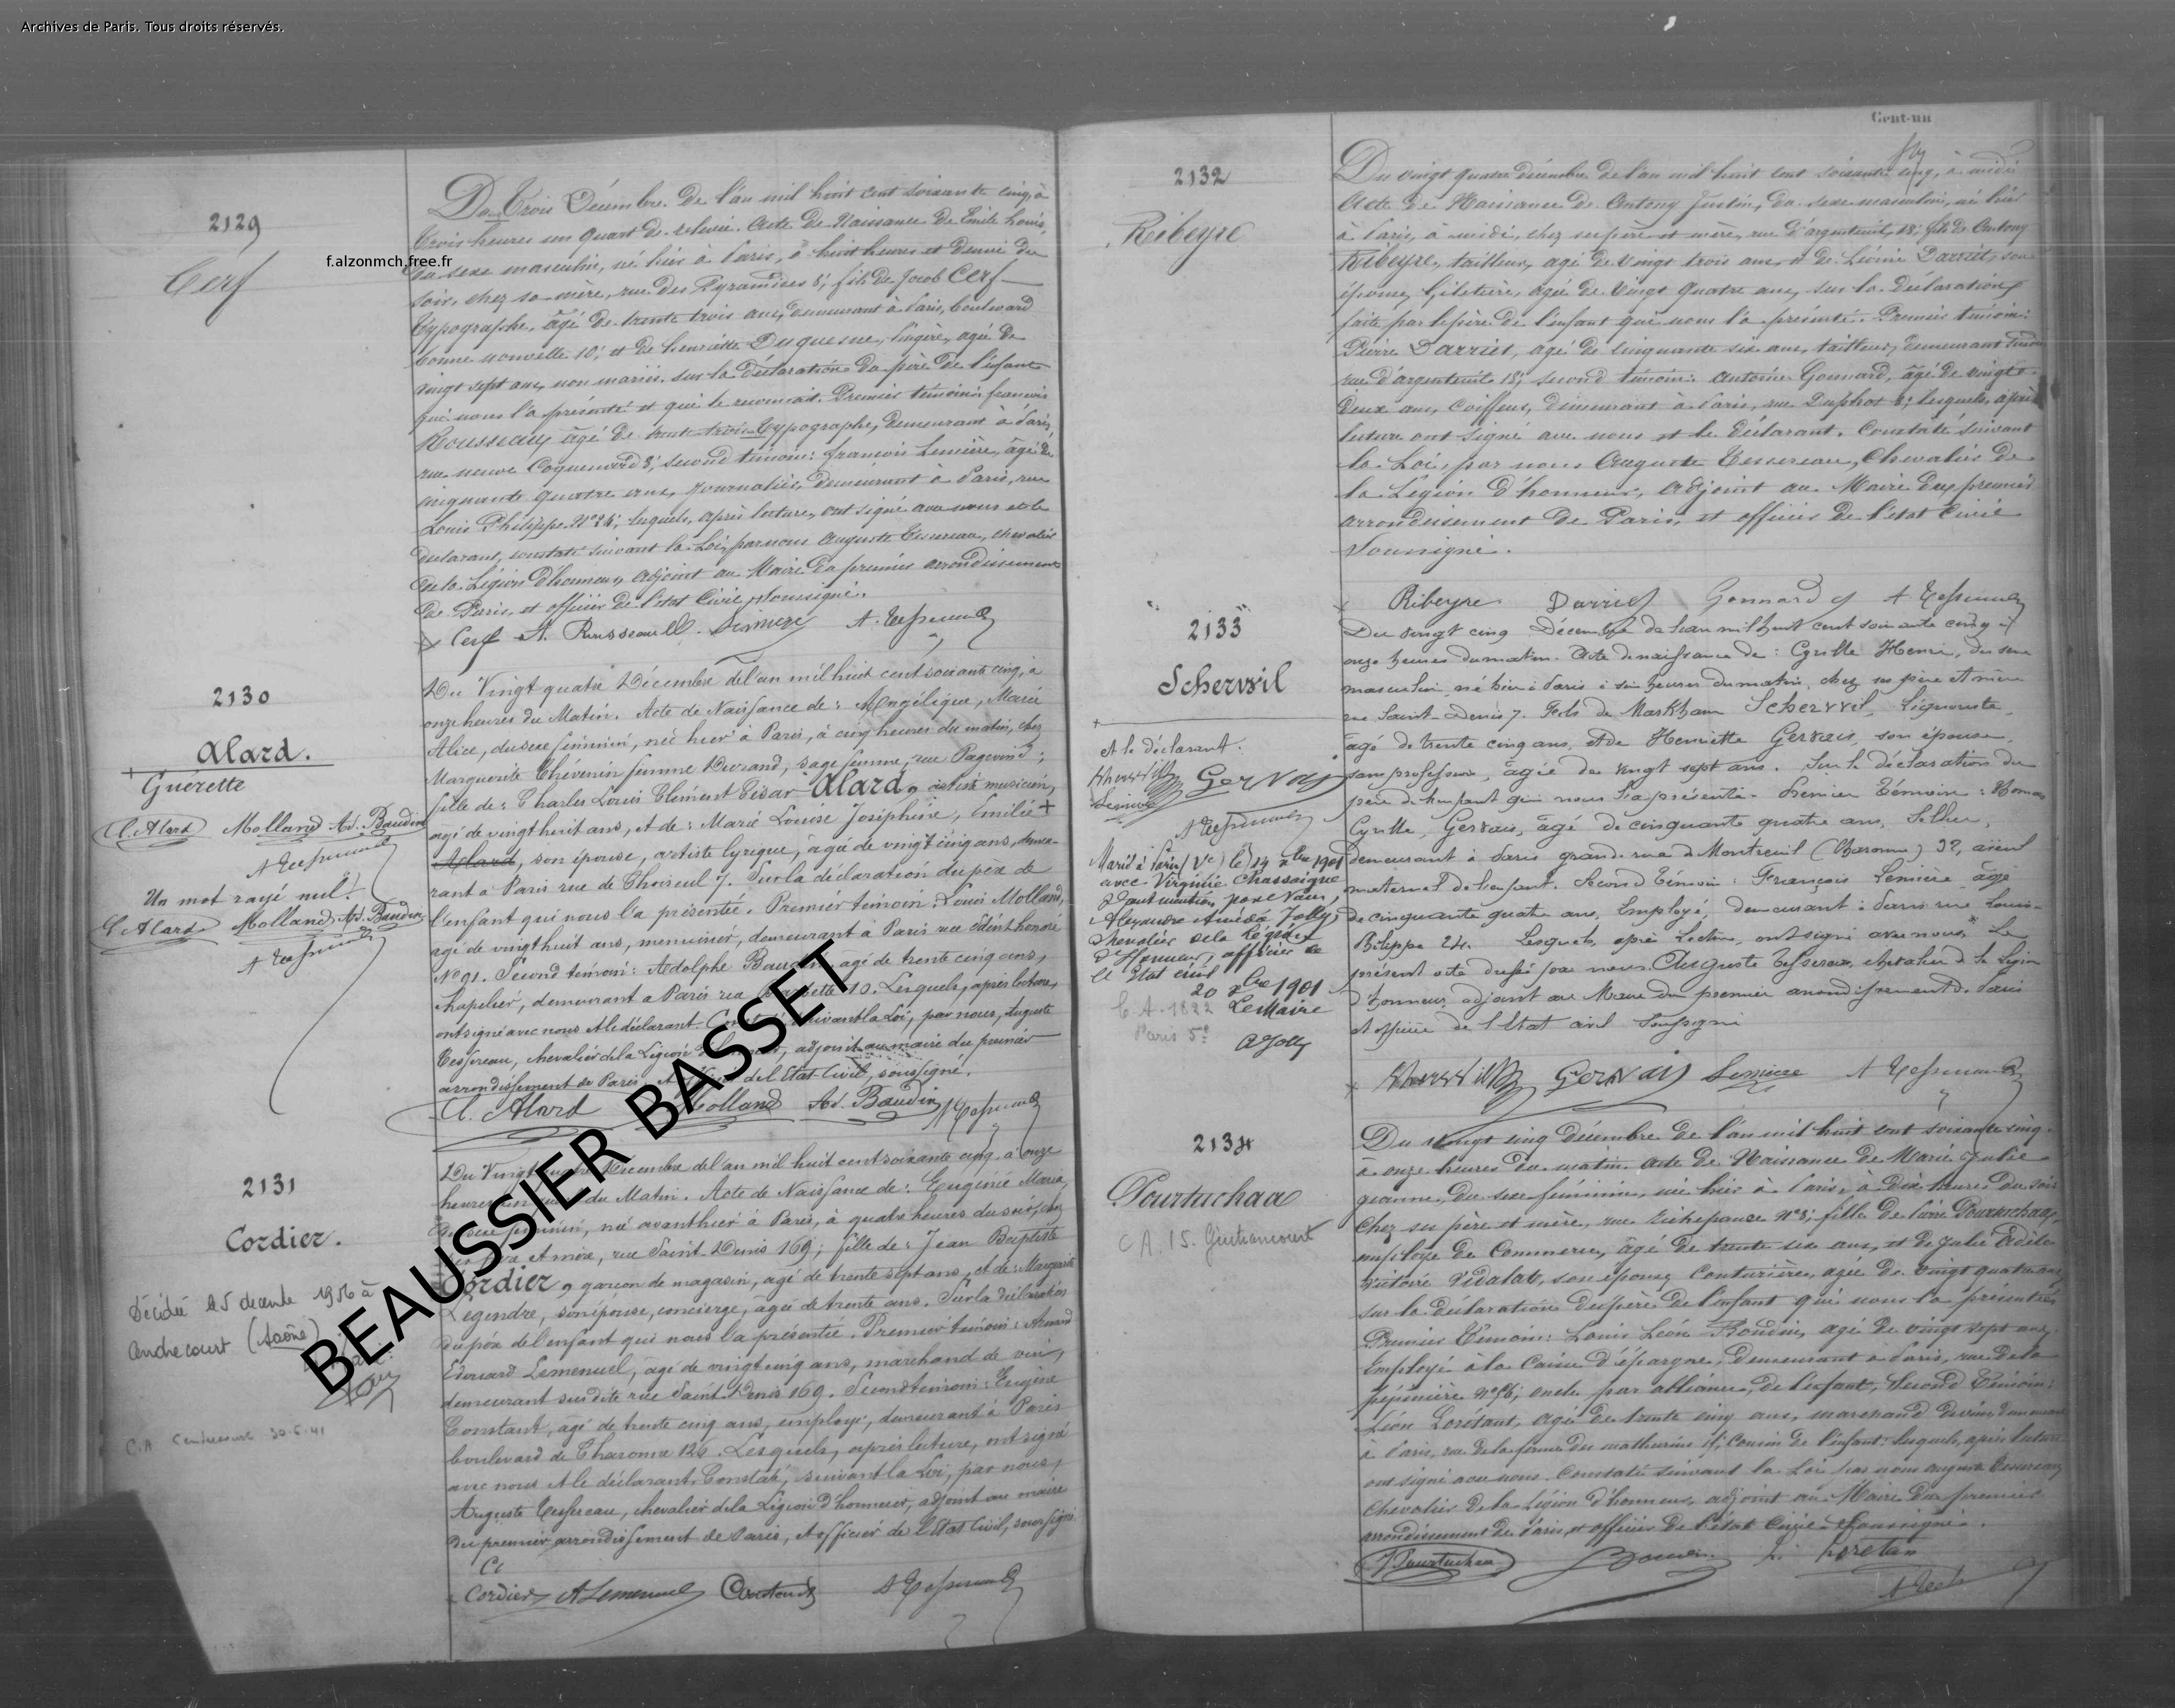 Archives de Paris. Tous droits réservés.
f.alzonmch.free.fr
BEAUSSIER BASSET
2129
Cerf
Du Trois Décembre de l'an mil huit cent soixante cinq, à
trois heures un quart de relevée. Acte de Naissance de Émile Louis,
du sexe masculin, né hier à Paris, à huit heures et demie du
soir, chez sa mère, rue des Pyramides 8; fils de Jacob Cerf
typographe, âgé de trente trois ans, demeurant à Paris, boulevard
bonne nouvelle 10; et de henriette Duquesne, lingère, agée de
vingt sept ans, non mariés. sur la déclaration du père de l'enfant
qui nous l'a présenté et qui le reconnait. Premier témoin: françois
Rousseau, âgé de trente trois, typographe, demeurant à Paris,
rue neuve Coquenard 8; second témoin: françois Lemière, âgé de
cinquante quatre ans, journalier, demeurant à Paris, rue
Louis Philippe N° 24; lesquels, après lecture, ont signé avec nous et le
déclarant, constaté suivant la Loi, par nous Auguste Tessereau, chevalier
de la Légion d'honneur, adjoint au Maire du premier arrondissement
de Paris, et officier de l'état Civil, soussigné.
Cerf A. Rousseau Lemiere A. Tessereau
2130
Alard.
Guérette
C. Alard Molland Ad. Baudin
A Tessereau
Un mot rayé nul.
C. Alard Molland Ad. Baudin
A Tessereau
Du Vingt quatre Décembre de l'an mil huit cent soixante cinq, à
onze heures du Matin. Acte de Naissance de: Angélique, Marie
Alice, du sexe féminin, née hier à Paris, à cinq heures du matin, chez
Marguerite Thévenin femme Durand, sage femme, rue Pagevin
fille de: Charles Louis Clément César Alard, artiste musicien,
agé de vingt huit ans, et de: Marie Louise Joséphine, Emilie +
Alard, son épouse, artiste lyrique, âgée de vingt cinq ans, demeu-
rant à Paris rue de Choiseul 7. Sur la déclaration du père de
l'enfant qui nous l'a présentée. Premier témoin: Louis Molland,
agé de vingt huit ans, menuisier, demeurant à Paris rue Saint honoré
N° 91. Second témoin: Adolphe Baudin, agé de trente cinq ans,
chapelier, demeurant à Paris rue 10. Lesquels, après lecture,
ont signé avec nous et le déclarant. Constaté suivant la Loi, par nous, Auguste
Tessereau, chevalier de la Légion d'honneur, adjoint au maire du premier
arrondissement de Paris, et officier de l'Etat Civil, soussigné.
C. Alard Molland Ad. Baudin A Tessereau
2131
Cordier.
Décédée le 5 décembre 1956 à
(Saône)
C.A. 30-5-41
Du Vingt quatre Décembre de l'an mil huit cent soixante cinq, à onze
heures du Matin. Acte de Naissance de: Eugénie Maria,
du sexe féminin, née avant hier à Paris, à quatre heures du soir, chez
ses père et mère, rue Saint Denis 169; fille de: Jean Baptiste
Cordier, garçon de magasin, agé de trente sept ans, et de: Marguerite
Legendre, son épouse, concierge, âgée de trente ans. Sur la déclaration
du père de l'enfant qui nous l'a présentée. Premier témoin: Armand
Edouard Lemenuel, âgé de vingt cinq ans, marchand de vin,
demeurant susdite rue Saint Denis 169. Second témoin: Eugène
Constant, âgé de trente cinq ans, employé, demeurant à Paris
boulevard de Charonne 126. Lesquels, après lecture, ont signé
avec nous et le déclarant. Constaté, suivant la Loi, par nous,
Auguste Tessereau, chevalier de la Légion d'honneur, adjoint au maire
du premier arrondissement de Paris, et officier de l'Etat Civil, soussigné.
Cordier A Lemenuel Constant A Tessereau
Cent-un
2132
Ribeyre
Du vingt quatre décembre de l'an mil huit cent soixante cinq, à midi
Acte de Naissance de Antony Justin, du sexe masculin, né hier
à Paris, à midi, chez ses père et mère, rue d'argenteuil, 18; fils de Antony
Ribeyre, tailleur, agé de vingt trois ans, et de Darriet, son
épouse, giletière, agée de vingt quatre ans, sur la déclaration
faite par le père de l'enfant qui nous l'a présenté. Premier témoin:
Pierre Darriet, agé de cinquante six ans, tailleur, demeurant susdite
rue d'argenteuil 18; second témoin: Antoine Gonnard, âgé de vingt
deux ans, coiffeur, demeurant à Paris, rue Duphot 8; lesquels, après
lecture ont signé avec nous et le déclarant. Constaté suivant
la Loi, par nous Auguste Tessereau, Chevalier de
la Légion d'honneur, Adjoint au Maire du premier
arrondissement de Paris, et officier de l'état Civil
soussigné.
Ribeyre Darriet Gonnard A Tessereau
2133
Scherwil
et le déclarant:
Gervais
Lemiere
A Tessereau
Marié à Paris (Ve) le 14 xbre 1901
avec Virginie Chassaigne
Dont mention par Nous,
Alexandre Amédée Jolly,
Chevalier de la Légion
d'Honneur, officier de
l'Etat civil
20 xbre 1901
Le Maire
Paris 5e
A Jolly
Du vingt cinq Décembre de l'an mil huit cent soixante cinq à
onze heures du matin. Acte de naissance de: Cyrille Henri, du sexe
masculin, né hier à Paris à six heures du matin, chez ses père et mère
rue Saint-Denis 7. Fils de Markham Scherwil, Liquoriste,
âgé de trente cinq ans, et de Henriette Gervais, son épouse,
sans profession, âgée de vingt sept ans. Sur la déclaration du
père de l'enfant qui nous l'a présenté. Premier Témoin: Thomas
Cyrille, Gervais, âgé de cinquante quatre ans, Sellier,
demeurant à Paris grande rue de Montreuil (Charonne) 32, aïeul
maternel de l'enfant. Second Témoin: François Lemière âgé
de cinquante quatre ans, Employé, demeurant à Paris rue Louis-
Philippe 24. Lesquels, après Lecture, ont signé avec nous le
présent acte dressé par nous Auguste Tessereau, chevalier de la Légion
d'honneur, adjoint au Maire du premier arrondissement de Paris
et officier de l'Etat civil soussigné
Gervais Lemiere A Tessereau
2134
Pourtuchaa
C.A. 15.
Du vingt cinq décembre de l'an mil huit cent soixante cinq
à onze heures du matin. Acte de Naissance de Marie Julie
jeanne, du sexe féminin, née hier à Paris, à dix heures du soir
chez ses père et mère, rue Richepance N° 8; fille de Pierre Pourtuchaa,
employé de Commerce, âgé de trente six ans, et de Julie Adèle
Victoire Vidalat, son épouse, Couturière, agée de vingt quatre ans,
sur la déclaration du père de l'enfant qui nous l'a présentée
Premier Témoin: Louis Léon agé de vingt sept ans,
Employé à la Caisse d'épargne, demeurant à Paris, rue de la
pépinière N° oncle par alliance de l'enfant, Second Témoin:
Léon Lorétant, agé de trente cinq ans, marchand de vin, demeurant
à Paris, rue de la ferme des mathurins cousin de l'enfant: lesquels, après lecture
ont signé avec nous. Constaté suivant la Loi par nous Auguste Tessereau,
Chevalier de la Légion d'honneur, adjoint au Maire du premier
arrondissement de Paris, et officier de l'état Civil soussigné.
Pourtuchaa